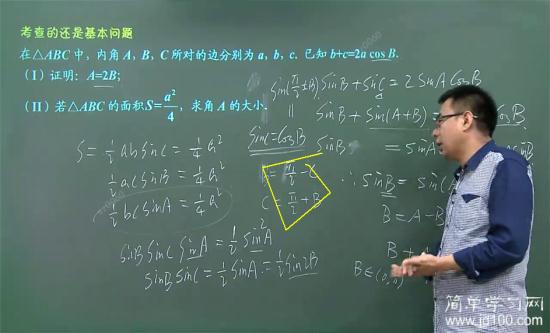 考查的还是基本问题
在△ABC中，内角A，B，C所对的边分别为a，b，c. 已知b+c=2a cos B.
（Ⅰ）证明：A=2B；
（Ⅱ）若△ABC的面积S=a²/4，求角A的大小.
sin(π/2±B)
sinB + sinC = 2 sinA cosB
sinB + sin(A+B) =
sinC = cosB
∴ sinB = sin(
B = A-B
B∈(0,π)
S = 1/2 ab sinC = 1/4 a²
1/2 ac sinB = 1/4 a²
1/2 bc sinA = 1/4 a²
C = π/2 + B
sinB sinC sinA = 1/2 sin²A
sinB sinC = 1/2 sinA = 1/2 sin2B
简单学习网
www.jd100.com